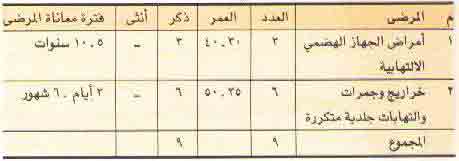 م المرضى العدد العمر ذكر أنثى فترة معاناة المرضى
١ أمراض الجهاز الهضمي ٣ ٤٠.٣٠ ٣ – ١٠.٥ سنوات
الالتهابية
٢ خراريج وجمرات ٦ ٥٠.٣٥ ٦ – ٣ أيام.٦ شهور
والتهابات جلدية متكررة
المجموع ٩ ٩